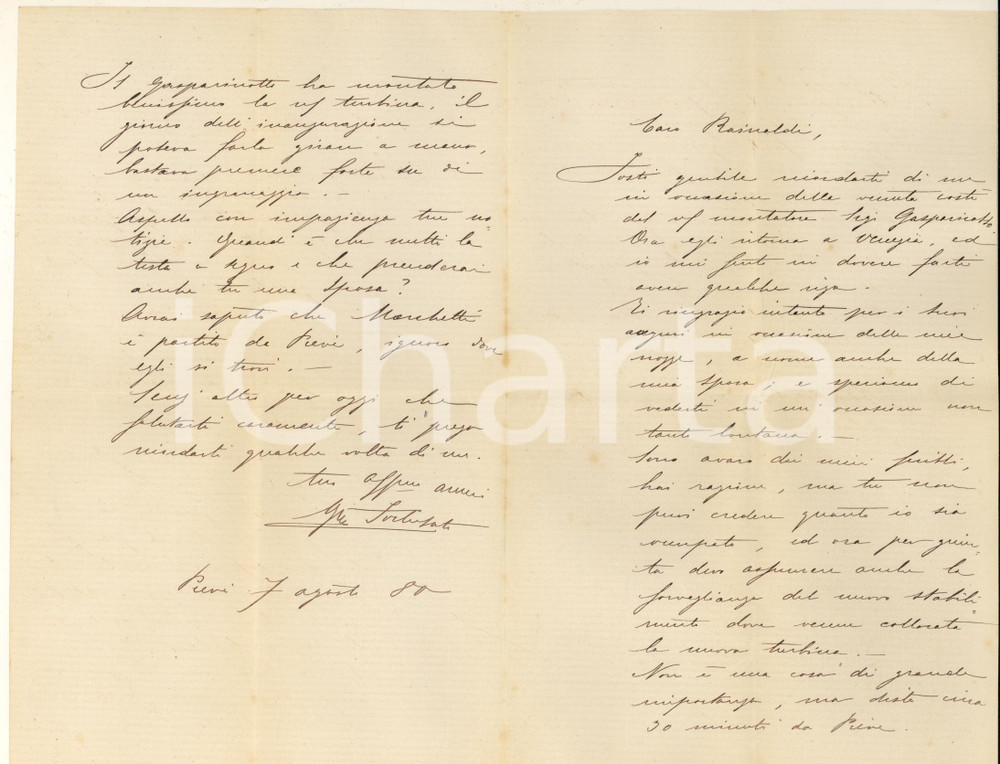 Caro Rainaldi,
Fosti gentile ricordarti di me
in occasione della venuta costì
del ns/ montatore Sigr Gasparinotto
Ora egli ritorna a Venezia, ed
io mi sento in dovere farti
avere qualche riga.
Ti ringrazio intanto per i tuoi
auguri in occasione delle mie
nozze, a nome anche della
mia sposa; e speriamo di
vederti in un'occasione non
tanto lontana. —
Sono avaro dei miei scritti,
hai ragione, ma tu non
puoi credere quanto io sia
occupato, ed ora per giun-
ta devo assumere anche la
sorveglianza del nuovo stabili-
mento dove venne collocata
la nuova turbina. —
Non è una cosa di grande
importanza, ma dista circa
30 minuti da Pieve.
Il Gasparinotto ha montato
benissimo la ns/ turbina, il
giorno dell'inaugurazione si
poteva farla girare a mano,
bastava premere forte su di
un ingranaggio. —
Aspetto con impazienza tue no-
tizie. Quand'è che metti la
testa a segno e che prenderai
anche tu una sposa?
Avrai saputo che Marchetti
è partito da Pieve, ignoro dove
egli si trovi. —
Senz'altro per oggi che
salutarti caramente, ti prego
ricordarti qualche volta di me.
tuo affmo amico
Pieve 7 agosto 80
iCharta